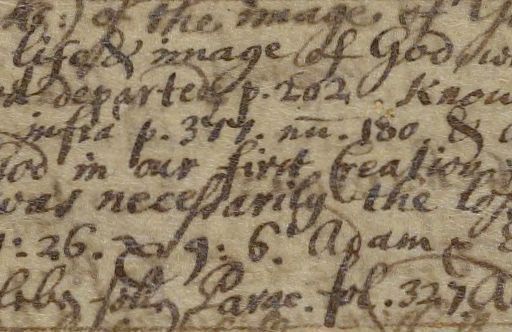 of the image of
life & image of God
departed p. 202 Know
infra p. 377. nū. 180 &
God in our first Creation
was necessarily the los
1: 26. & 9: 6. Adam &
Parac. fol. 327.